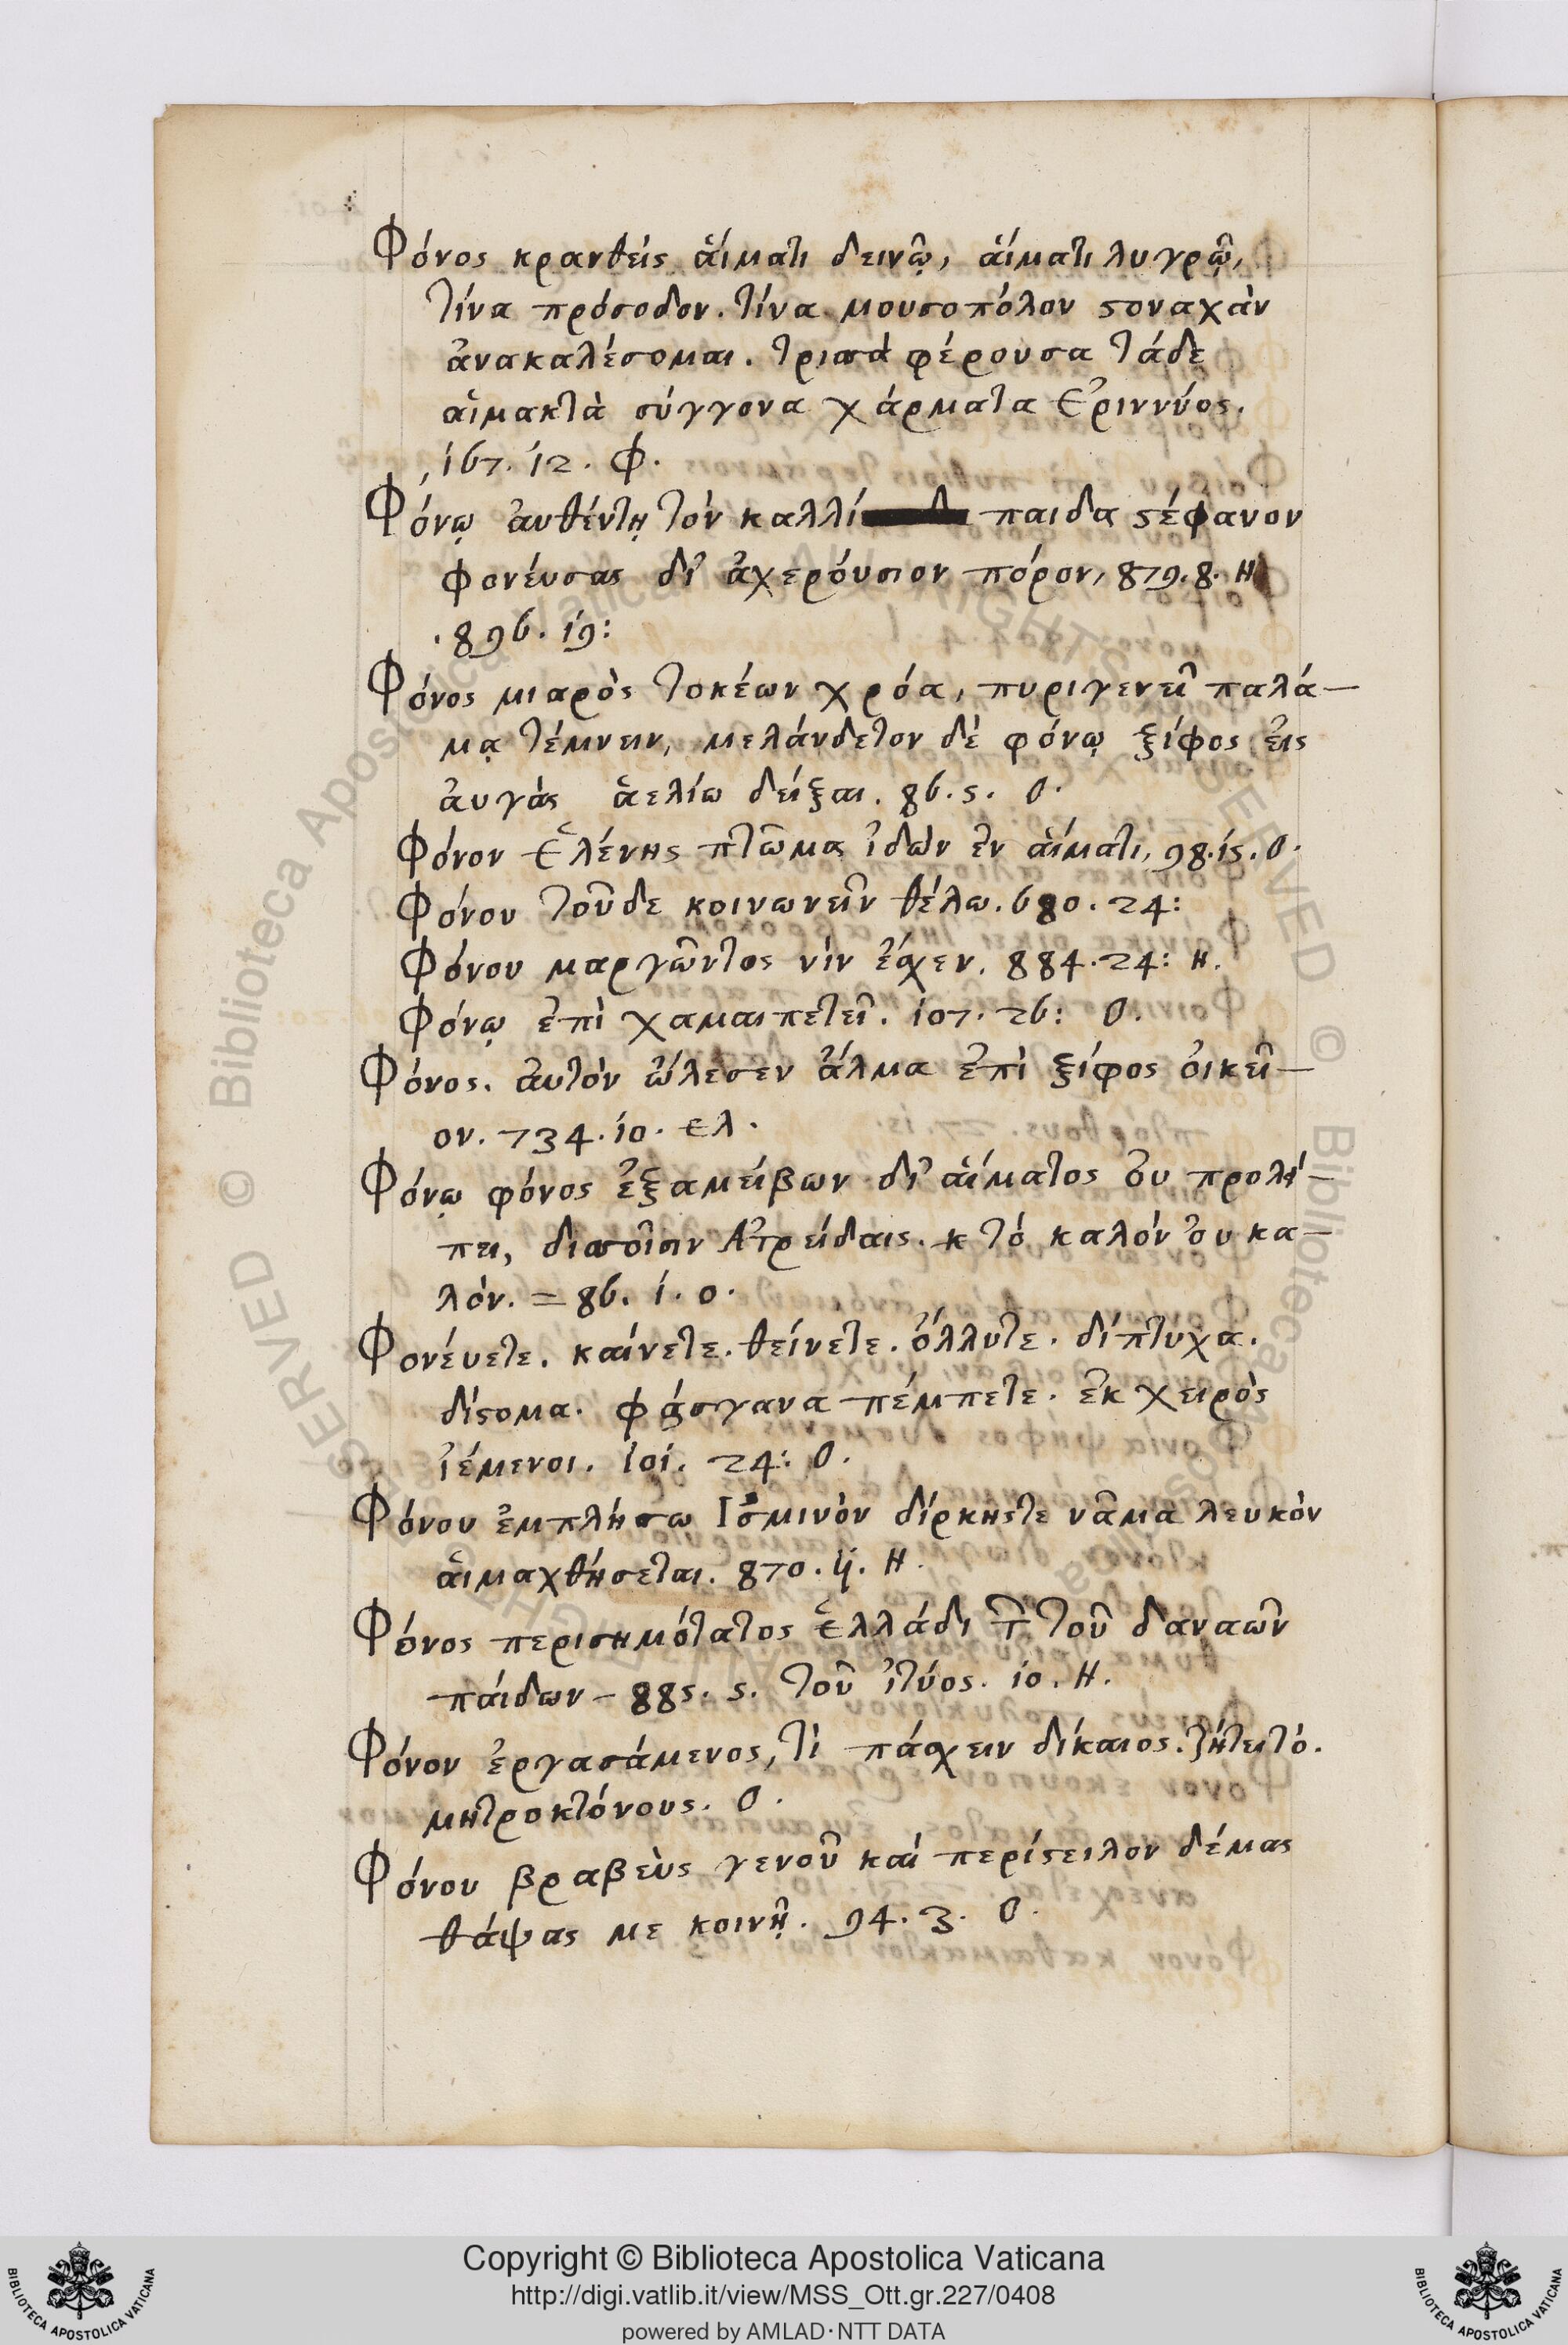 Φόνος κρανθεὶς ἁίματι δεινῷ, ἁίματι λυγρῷ,
τίνα πρόσοδον. τίνα μουσοπόλον ϛοναχὰν
ἀνακαλέσομαι. τρισσὰ φέρουσα τάδε
αἱμακτὰ σύγγονα χάρματα Ἐριννύος.
,167. 12. Φ.
Φόνῳ ἀυθέντῃ τὸν καλλί παιδα ϛέφανον
φονέυσας δι' ἀχερόυσιον πόρον, 879. 8. Η
.896. 19:
Φόνος μιαρὸς τοκέων χρόα, πυριγενεῖ παλά–
μᾳ τέμνειν, μελάνδετον δὲ φόνῳ ξίφος ἐις
ἀυγὰς ἁελίω δείξαι. 86. 5. Ο.
Φόνον Ἑλένης πτῶμα ἰδὼν ἐν ἁίματι, 98. 15. Ο.
Φόνου τοῦδε κοινωνεῖν θέλω. 680. 24:
Φόνου μαργῶντος νὶν ἔσχεν. 884. 24: Η.
Φόνῳ ἐπὶ χαμαιπετεῖ. 107. 26: Ο.
Φόνος. ἀυτὸν ὤλεσεν ἅλμα ἐπὶ ξίφος ὀικεῖ–
ον. 734. 10. ελ.
Φόνῳ φόνος ἐξαμείβων δι' ἁίματος ὀυ προλεί–
πει, δισσοῖσιν Ἀτρείδαις. κ τὸ καλὸν ὀυ κα–
λόν. = 86. 1. ο.
Φονέυετε. καίνετε. θείνετε. ὄλλυτε. δίπτυχα.
δίϛομα. φάσγανα πέμπετε. ἐκ χειρὸς
ἱέμενοι. 101. 24: Ο.
Φόνου ἐμπλήσω Ισμινὸν δίρκηϛτε νᾶμα λευκὸν
ἁιμαχθήσεται. 870. 4. Η.
Φόνος περισημότατος ἑλλάδι τοῦ δαναῶν
πάιδων – 885. 5. τοῦ ἰτύος. 10. Η.
Φόνον ἐργασάμενος, τὶ πάσχειν δίκαιος. ζήτει τό.
μητροκτόνους. Ο.
Φόνου βραβεὺς γενοῦ καὶ περίϛειλον δέμας
θάψας με κοινῇ. 94. 3. Ο.
Copyright © Biblioteca Apostolica Vaticana
http://digi.vatlib.it/view/MSS_Ott.gr.227/0408
powered by AMLAD·NTT DATA